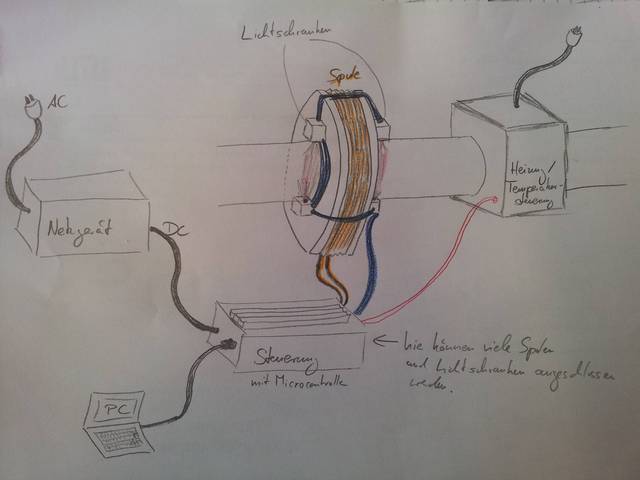 Lichtschranken
Spule
AC
Heizung/
Temperatur-
steuerung
Netzgerät
DC
Steuerung
mit Microcontrolle
← hie können viele Spulen
und Lichtschranken angeschlossen
werden.
PC